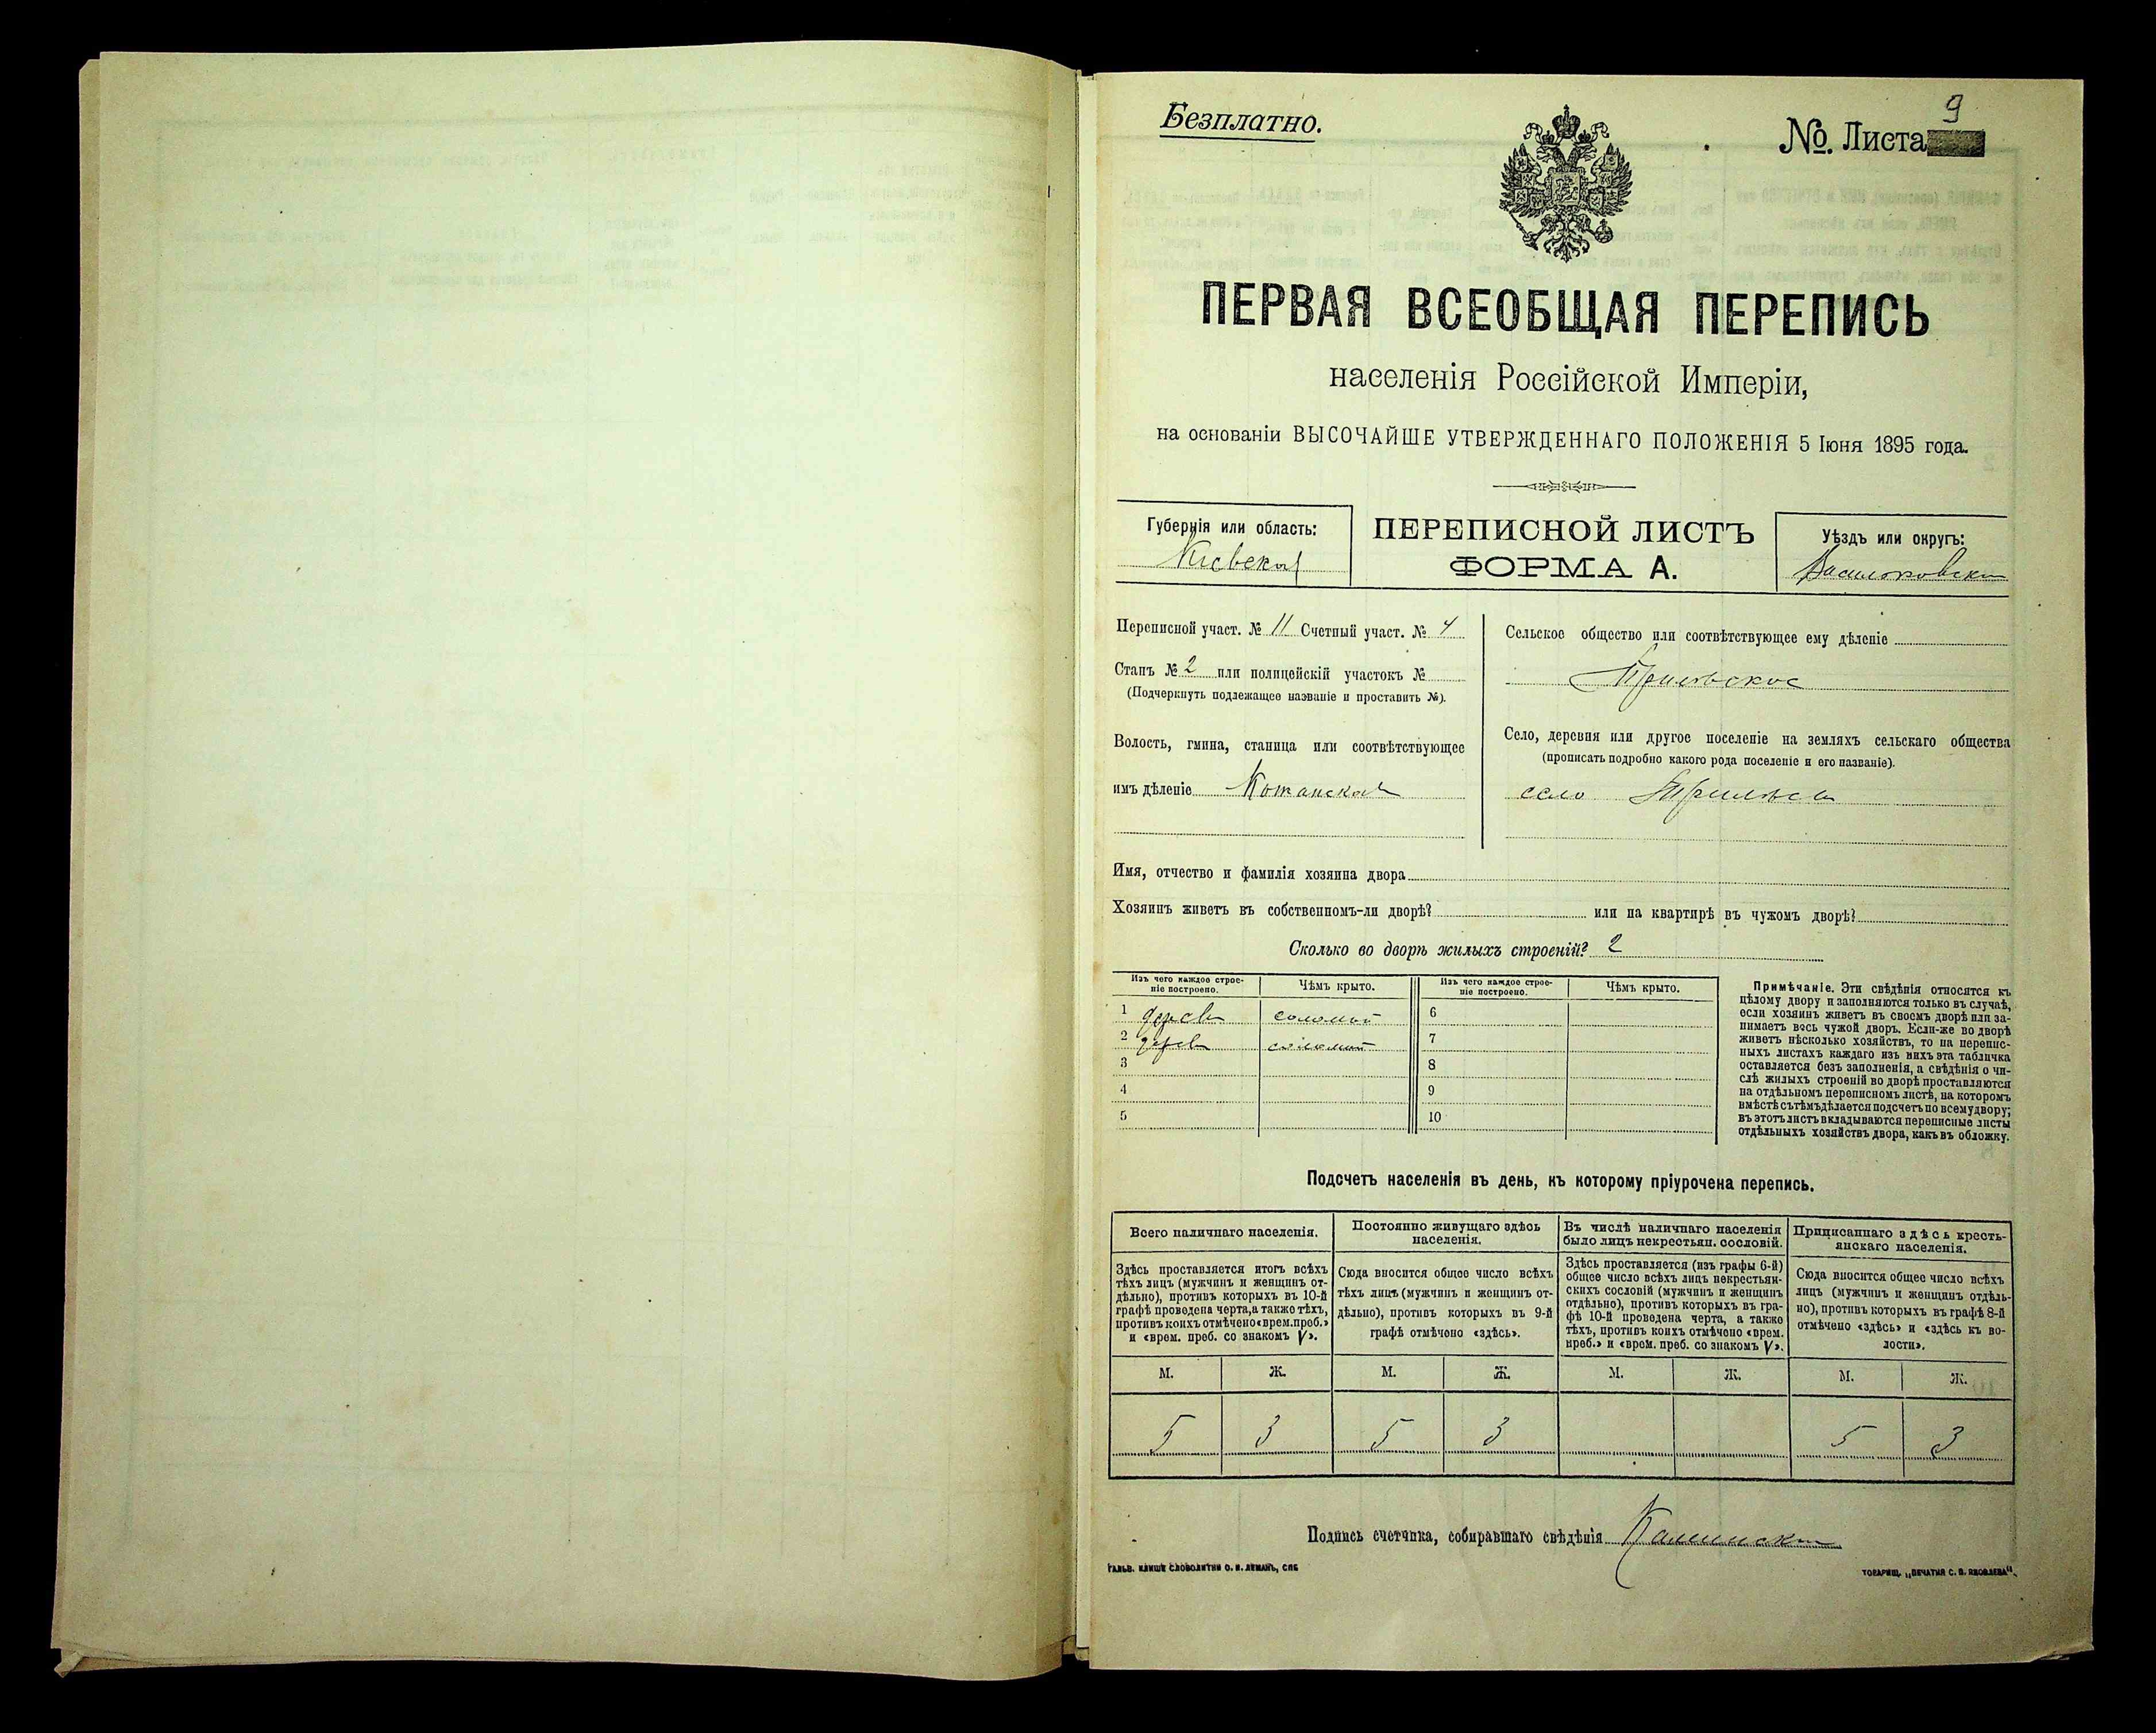 Безплатно.
№. Листа 9
ПЕРВАЯ ВСЕОБЩАЯ ПЕРЕПИСЬ
населенія Россійской Имперіи,
на основаніи ВЫСОЧАЙШЕ УТВЕРЖДЕННАГО ПОЛОЖЕНІЯ 5 Іюня 1895 года.
Губернія или область:
Кіевская
ПЕРЕПИСНОЙ ЛИСТЪ
ФОРМА А.
Уѣздъ или округъ:
Васильковскій
Переписной участ. № 11 Счетный участ. № 4
Станъ № 2 или полицейскій участокъ №
(Подчеркнуть подлежащее названіе и проставить №).
Волость, гмина, станица или соотвѣтствующее
имъ дѣленіе Кожанская
Сельское общество или соотвѣтствующее ему дѣленіе
Трилѣское
Село, деревня или другое поселеніе на земляхъ сельскаго общества
(прописать подробно какого рода поселеніе и его названіе).
село Трилѣсы
Имя, отчество и фамилія хозяина двора
Хозяинъ живетъ въ собственномъ-ли дворѣ? или на квартирѣ въ чужомъ дворѣ?
Сколько во дворѣ жилыхъ строеній? 2
Изъ чего каждое строе-
ніе построено.
Чѣмъ крыто.
Изъ чего каждое строе-
ніе построено.
Чѣмъ крыто.
1 дерев соломой 6
2 дерев соломой 7
3 8
4 9
5 10
Примѣчаніе. Эти свѣдѣнія относятся къ
цѣлому двору и заполняются только въ случаѣ,
если хозяинъ живетъ въ своемъ дворѣ или за-
нимаетъ весь чужой дворъ. Если-же во дворѣ
живетъ нѣсколько хозяйствъ, то на перепис-
ныхъ листахъ каждаго изъ нихъ эта табличка
оставляется безъ заполненія, а свѣдѣнія о чи-
слѣ жилыхъ строеній во дворѣ проставляются
на отдѣльномъ переписномъ листѣ, на которомъ
вмѣстѣ съ тѣмъ дѣлается подсчетъ по всему двору;
въ этотъ листъ вкладываются переписные листы
отдѣльныхъ хозяйствъ двора, какъ въ обложку.
Подсчетъ населенія въ день, къ которому пріурочена перепись.
Всего наличнаго населенія.
Здѣсь проставляется итогъ всѣхъ
тѣхъ лицъ (мужчинъ и женщинъ от-
дѣльно), противъ которыхъ въ 10-й
графѣ проведена черта, а также тѣхъ,
противъ коихъ отмѣчено «врем. преб.»
и «врем. преб. со знакомъ V».
Постоянно живущаго здѣсь
населенія.
Сюда вносится общее число всѣхъ
тѣхъ лицъ (мужчинъ и женщинъ от-
дѣльно), противъ которыхъ въ 9-й
графѣ отмѣчено «здѣсь».
Въ числѣ наличнаго населенія
было лицъ некрестьян. сословій.
Здѣсь проставляется (изъ графы 6-й)
общее число всѣхъ лицъ некрестьян-
скихъ сословій (мужчинъ и женщинъ
отдѣльно), противъ которыхъ въ гра-
фѣ 10-й проведена черта, а также
тѣхъ, противъ коихъ отмѣчено «врем.
преб.» и «врем. преб. со знакомъ V».
Приписаннаго здѣсь кресть-
янскаго населенія.
Сюда вносится общее число всѣхъ
лицъ (мужчинъ и женщинъ отдѣль-
но), противъ которыхъ въ графѣ 8-й
отмѣчено «здѣсь» и «здѣсь къ во-
лости».
М. Ж. М. Ж. М. Ж. М. Ж.
5 3 5 3 5 3
Подпись счетчика, собиравшаго свѣдѣнія
ГАЛЬВ. КЛИШЕ СЛОВОЛИТНИ О. И. ЛЕМАНЪ, СПБ
ТОВАРИЩ. „ПЕЧАТНЯ С. П. ЯКОВЛЕВА“.